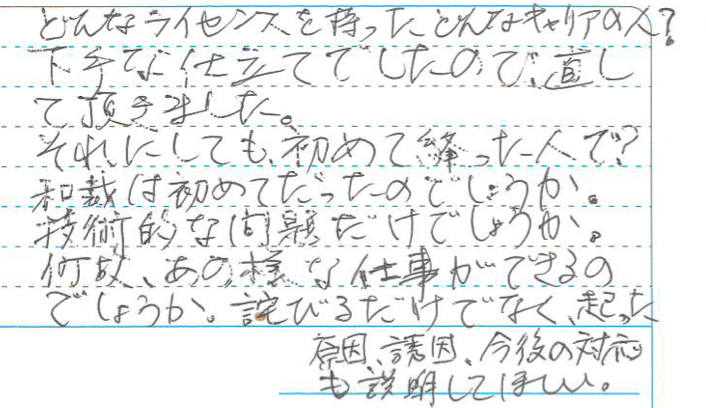 どんなライセンスを持ったどんなキャリアの人？
下手な仕立てでしたので、直し
て頂きました。
それにしても、初めて縫った人で？
和裁は初めてだったのでしょうか。
技術的な問題だけでしょうか。
何故、あの様な仕事ができるの
でしょうか。詫びるだけでなく、起った
原因、誘因、今後の対応
も説明してほしい。